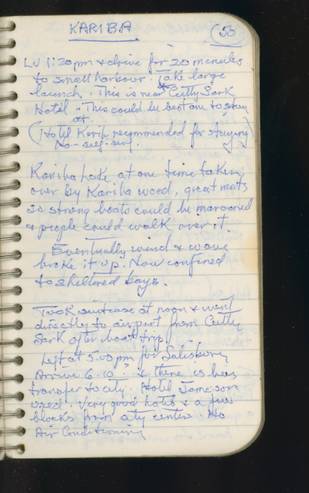 KARIBA 53
LV 1:30pm & drive for 20 minutes
to small harbour. Take large
launch. This is near Cutty Sark
Hotel. This could be best one to stay
at
(Hotel Kariba recommended for staying)
No
Kariba Lake at one time taken
over by Kariba weed, great mats
so strong boats could be marooned
& people could walk over it.
Eventually wind & wave
broke it up. Now confined
to sheltered bays.
Took suitcase at noon & went
directly to airport from Cutty
Sark after boat trip.
Left at 5:00pm for Salisbury
Arrive 6:10 & there is bus
transfer to city. Hotel Jameson
used. Very good hotel & a few
blocks from city centre. No
Air Conditioning